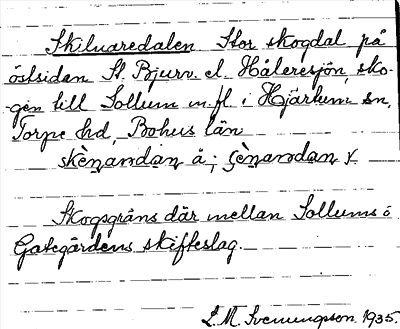 Skiluaredalen Stor skogdal på
östsidan St. Bjurv. el. Håleresjön, sko-
gen till Sollum m.fl. i Hjärtum sn,
Torpe hd, Bohus län
skènandan å; çènandan γ
Skogsgräns där mellan Sollums o
Gategårdens skifteslag.
L.M. Svenungsson. 1935.